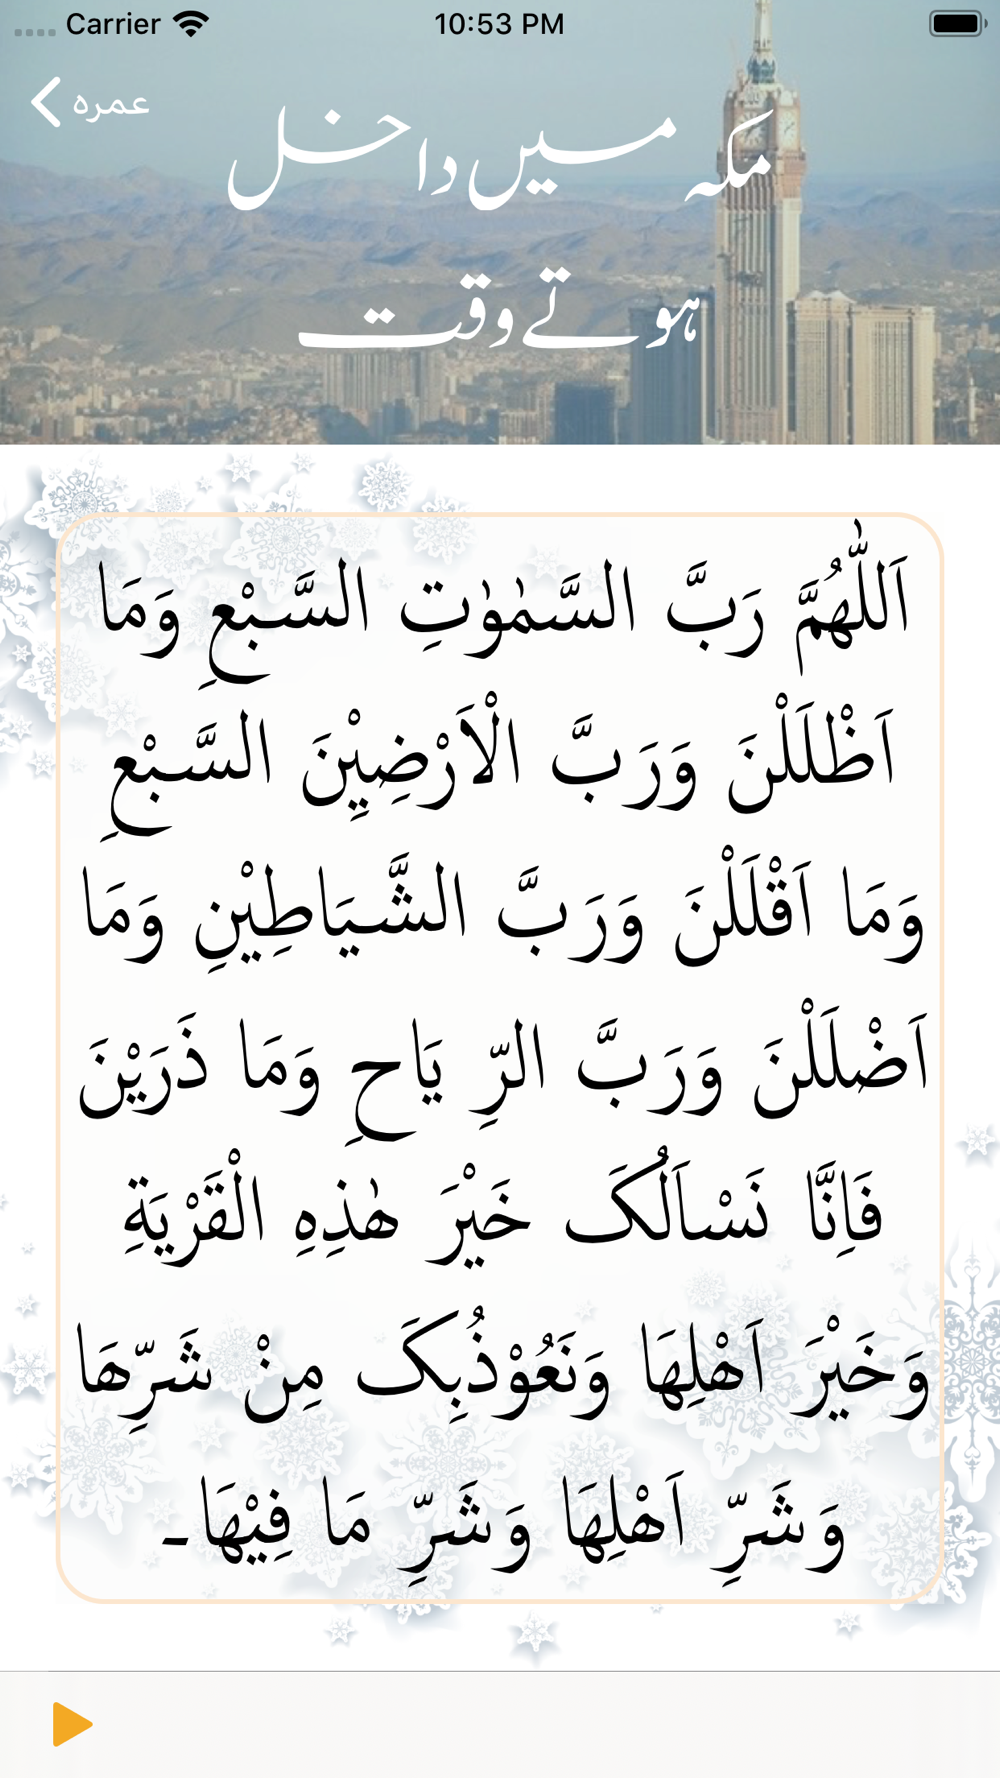 Carrier 10:53 PM
عمرہ
مکہ میں داخل
ہوتے وقت
اَللّٰهُمَّ رَبَّ السَّمٰوٰتِ السَّبْعِ وَمَا
اَظْلَلْنَ وَرَبَّ الْاَرْضِيْنَ السَّبْعِ
وَمَا اَقْلَلْنَ وَرَبَّ الشَّيَاطِيْنِ وَمَا
اَضْلَلْنَ وَرَبَّ الرِّ يَاحِ وَمَا ذَرَيْنَ
فَاِنَّا نَسْاَلُکَ خَيْرَ هٰذِهِ الْقَرْيَةِ
وَخَيْرَ اَهْلِهَا وَنَعُوْذُبِکَ مِنْ شَرِّهَا
وَشَرِّ اَهْلِهَا وَشَرِّ مَا فِيْهَا۔